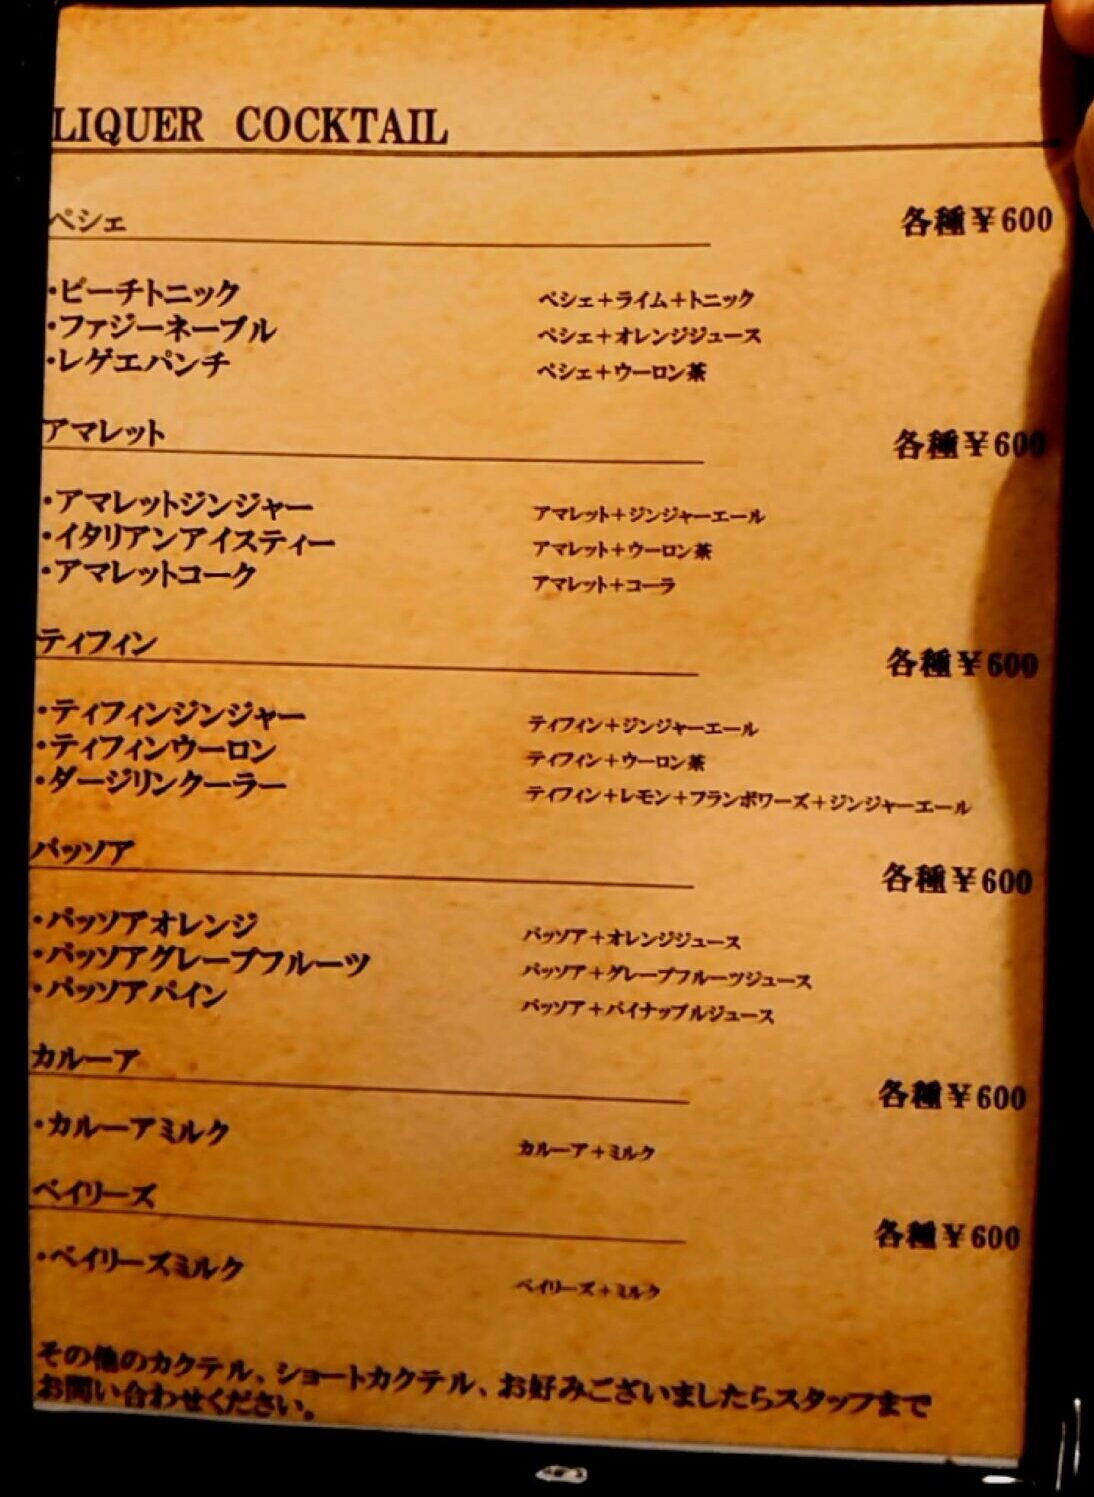 LIQUER COCKTAIL
ペシェ 各種¥600
・ピーチトニック ペシェ+ライム+トニック
・ファジーネーブル ペシェ+オレンジジュース
・レゲエパンチ ペシェ+ウーロン茶
アマレット 各種¥600
・アマレットジンジャー アマレット+ジンジャーエール
・イタリアンアイスティー アマレット+ウーロン茶
・アマレットコーク アマレット+コーラ
ティフィン 各種¥600
・ティフィンジンジャー ティフィン+ジンジャーエール
・ティフィンウーロン ティフィン+ウーロン茶
・ダージリンクーラー ティフィン+レモン+フランボワーズ+ジンジャーエール
パッソア 各種¥600
・パッソアオレンジ パッソア+オレンジジュース
・パッソアグレープフルーツ パッソア+グレープフルーツジュース
・パッソアパイン パッソア+パイナップルジュース
カルーア 各種¥600
・カルーアミルク カルーア+ミルク
ベイリーズ 各種¥600
・ベイリーズミルク ベイリーズ+ミルク
その他のカクテル、ショートカクテル、お好みございましたらスタッフまで
お問い合わせください。